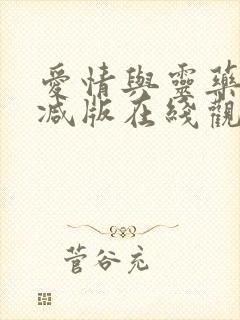 愛情與靈藥
減版在綫觀
菅谷充